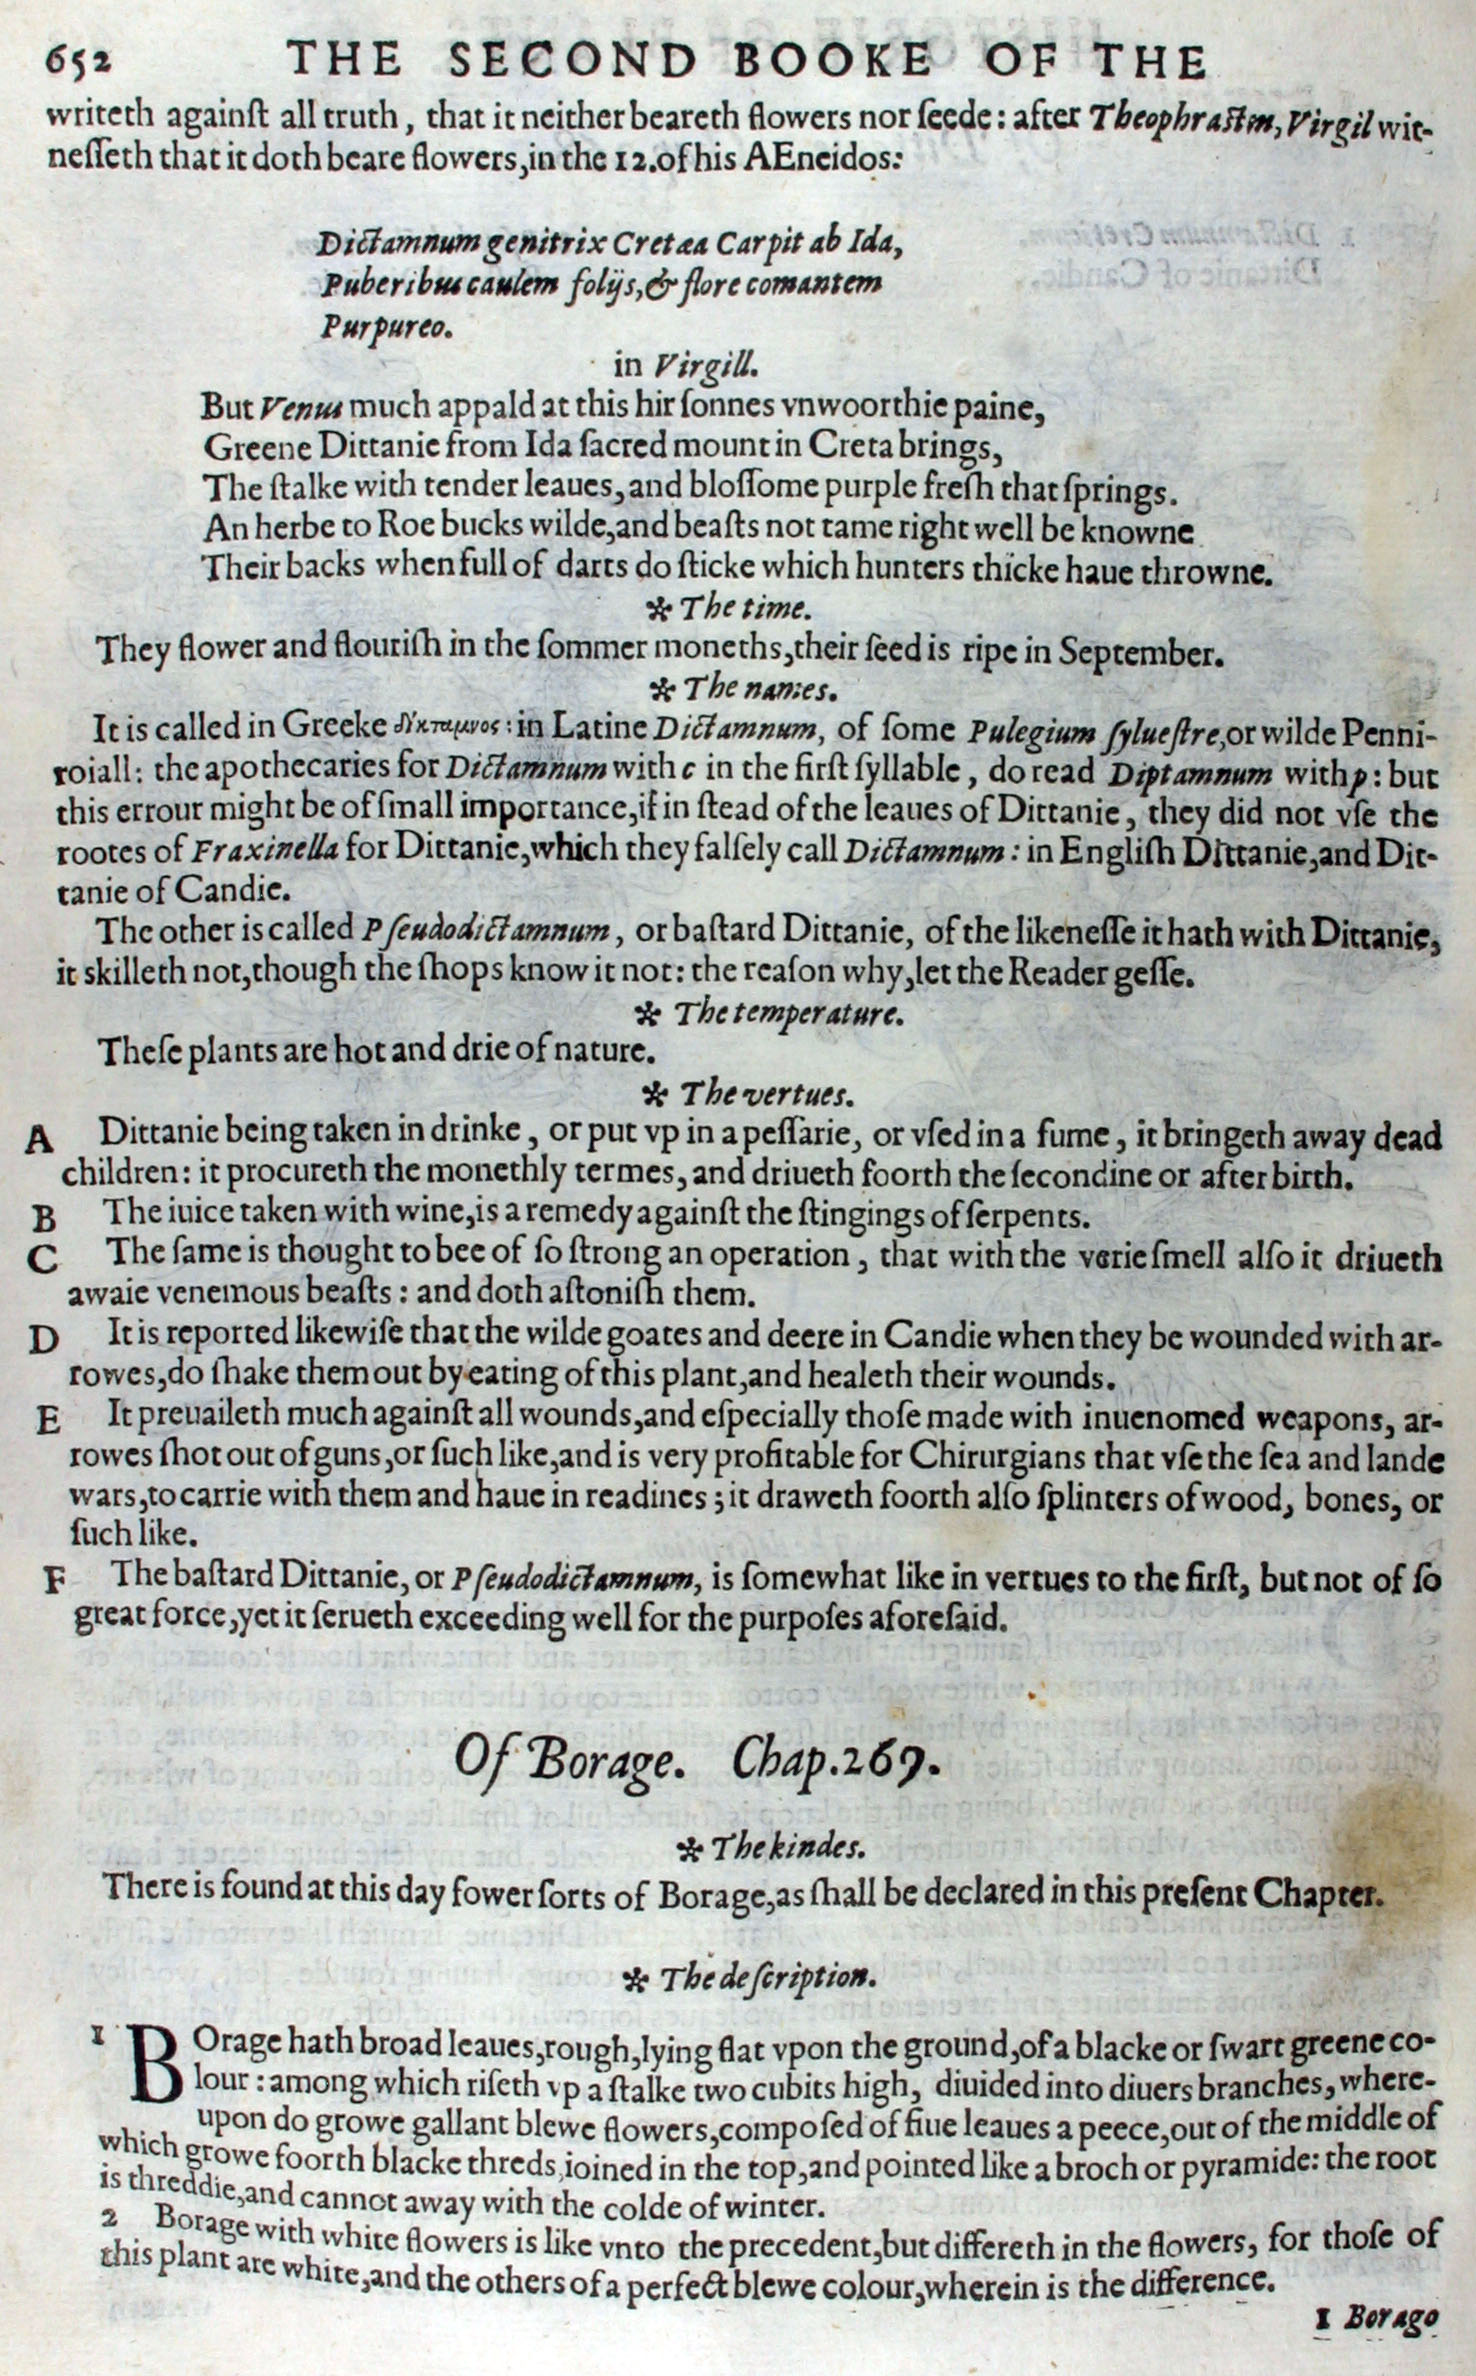 652 THE SECOND BOOKE OF THE
writeth againſt all truth, that it neither beareth flowers nor ſeede: after Theophraſtus, Virgil wit-
neſſeth that it doth beare flowers, in the 12. of his AEneidos:
Dictamnum genitrix Cretæa Carpit ab Ida,
Puberibus caulem folijs, & flore comantem
Purpureo.
in Virgill.
But Venus much appald at this hir ſonnes vnwoorthie paine,
Greene Dittanie from Ida ſacred mount in Creta brings,
The ſtalke with tender leaues, and bloſſome purple freſh that ſprings.
An herbe to Roe bucks wilde, and beaſts not tame right well be knowne
Their backs when full of darts do ſticke which hunters thicke haue throwne.
✻ The time.
They flower and flouriſh in the ſommer moneths, their ſeed is ripe in September.
✻ The names.
It is called in Greeke δίκταμνος: in Latine Dictamnum, of ſome Pulegium ſylueſtre, or wilde Penni-
roiall: the apothecaries for Dictamnum with c in the firſt ſyllable, do read Diptamnum with p: but
this errour might be of ſmall importance, if in ſtead of the leaues of Dittanie, they did not vſe the
rootes of Fraxinella for Dittanie, which they falſely call Dictamnum: in Engliſh Dittanie, and Dit-
tanie of Candie.
The other is called Pſeudodictamnum, or baſtard Dittanie, of the likeneſſe it hath with Dittanie,
it skilleth not, though the ſhops know it not: the reaſon why, let the Reader geſſe.
✻ The temperature.
Theſe plants are hot and drie of nature.
✻ The vertues.
A Dittanie being taken in drinke, or put vp in a peſſarie, or vſed in a fume, it bringeth away dead
children: it procureth the monethly termes, and driueth foorth the ſecondine or afterbirth.
B The iuice taken with wine, is a remedy againſt the ſtingings of ſerpents.
C The ſame is thought to bee of ſo ſtrong an operation, that with the verie ſmell alſo it driueth
awaie venemous beaſts: and doth aſtoniſh them.
D It is reported likewiſe that the wilde goates and deere in Candie when they be wounded with ar-
rowes, do ſhake them out by eating of this plant, and healeth their wounds.
E It preuaileth much againſt all wounds, and eſpecially thoſe made with inuenomed weapons, ar-
rowes ſhot out of guns, or ſuch like, and is very profitable for Chirurgians that vſe the ſea and lande
wars, to carrie with them and haue in readines; it draweth foorth alſo ſplinters of wood, bones, or
ſuch like.
F The baſtard Dittanie, or Pſeudodictamnum, is ſomewhat like in vertues to the firſt, but not of ſo
great force, yet it ſerueth exceeding well for the purpoſes aforeſaid.
Of Borage. Chap. 269.
✻ The kindes.
There is found at this day fower ſorts of Borage, as ſhall be declared in this preſent Chapter.
✻ The deſcription.
1 BOrage hath broad leaues, rough, lying flat vpon the ground, of a blacke or ſwart greene co-
lour: among which riſeth vp a ſtalke two cubits high, diuided into diuers branches, where-
upon do growe gallant blewe flowers, compoſed of fiue leaues a peece, out of the middle of
which growe foorth blacke threds, ioined in the top, and pointed like a broch or pyramide: the root
is threddie, and cannot away with the colde of winter.
2 Borage with white flowers is like vnto the precedent, but differeth in the flowers, for thoſe of
this plant are white, and the others of a perfect blewe colour, wherein is the difference.
1 Borago